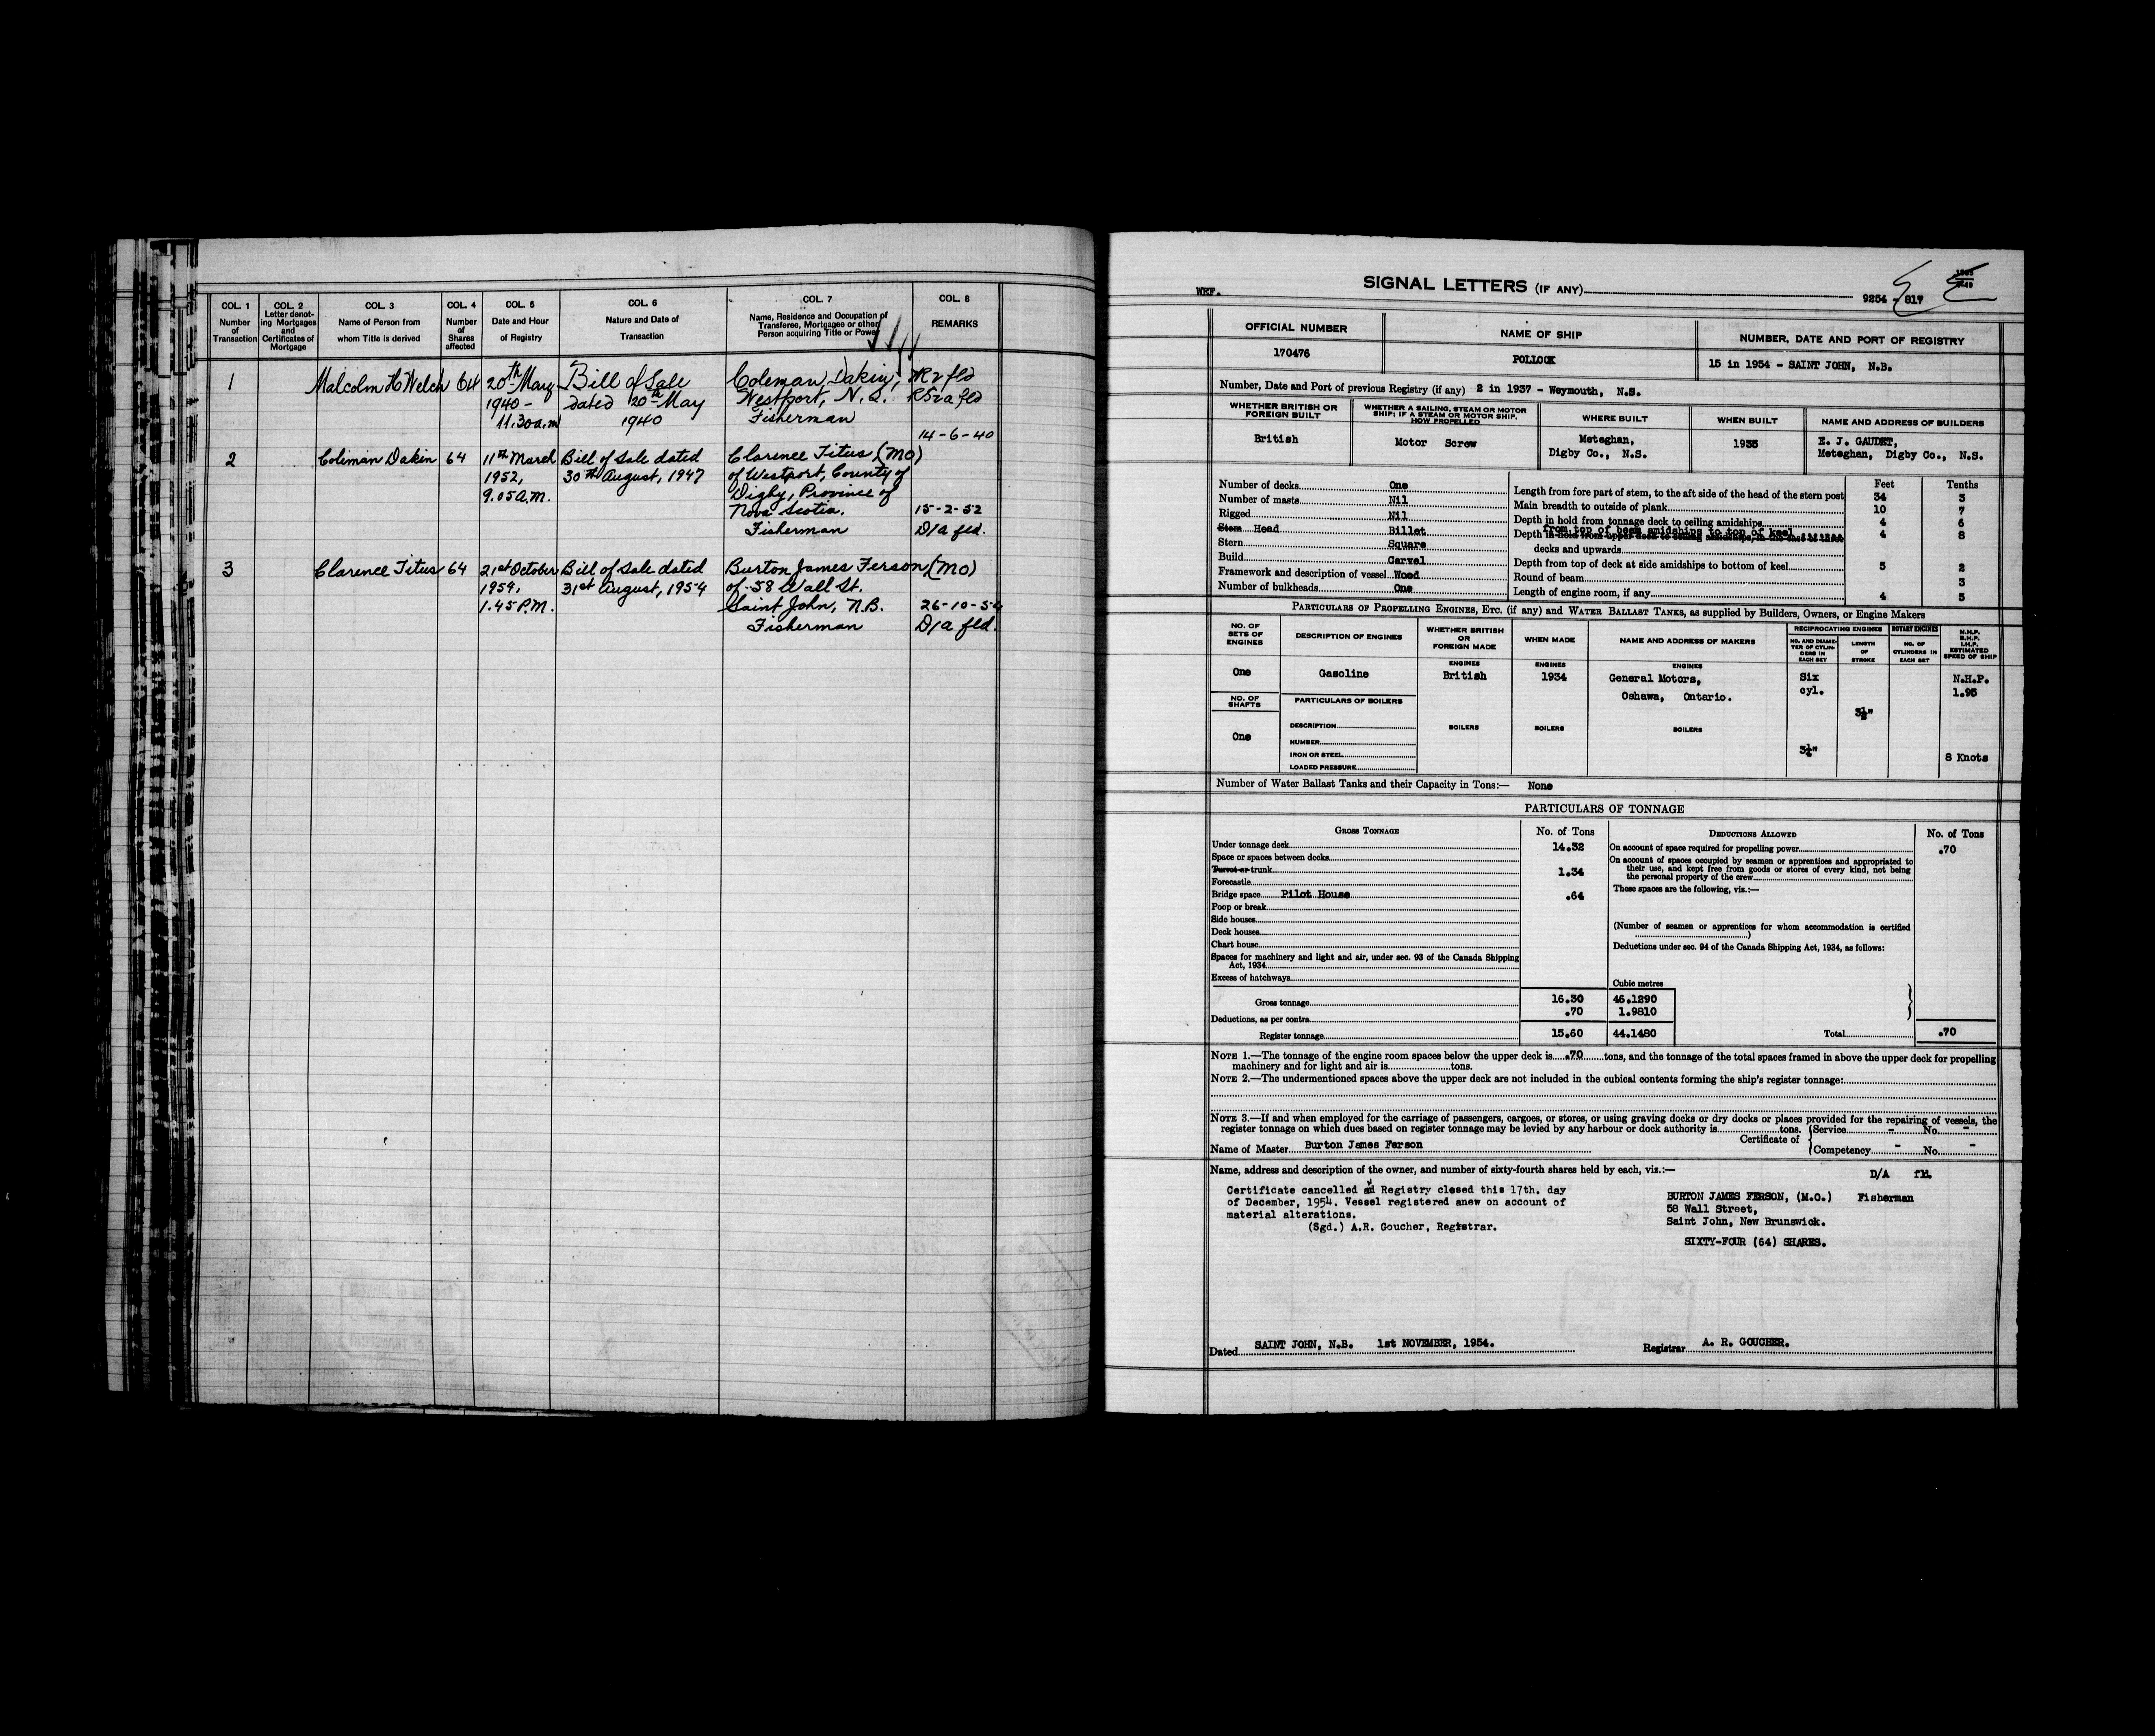 COL. 1
Number
of
Transaction
COL. 2
Letter denot-
ing Mortgages
and
Certificates of
Mortgage
COL. 3
Name of Person from
whom Title is derived
COL. 4
Number
of
Shares
affected
COL. 5
Date and Hour
of Registry
COL. 6
Nature and Date of
Transaction
COL. 7
Name, Residence and Occupation of
Transferee, Mortgagee or other
Person acquiring Title or Power
COL. 8
REMARKS
1 Malcolm H Welch 64 20th May Bill of Sale Coleman Dakin,
1940- dated 20th May Westport, N.S.
11.30 a.m 1940 Fisherman
14-6-40
2 Coleman Dakin 64 11th March Bill of Sale dated Clarence Titus (MO)
1952, 30th August, 1947 of Westport, County of
9.05 A.M. Digby, Province of
Nova Scotia. 15-2-52
Fisherman D/a fld.
3 Clarence Titus 64 21st October Bill of Sale dated Burton James Ferson (MO)
1954, 31st August, 1954 of 58 Wall St.
1.45 P.M. Saint John, N.B. 26-10-54
Fisherman D/a fld.
SIGNAL LETTERS (IF ANY)
WEF.
9254 - 817
OFFICIAL NUMBER
170476
NAME OF SHIP
POLLOCK
NUMBER, DATE AND PORT OF REGISTRY
15 in 1954 - SAINT JOHN, N.B.
Number, Date and Port of previous Registry (if any) 2 in 1937 - Weymouth, N.S.
WHETHER BRITISH OR
FOREIGN BUILT
British
WHETHER A SAILING, STEAM OR MOTOR
SHIP; IF A STEAM OR MOTOR SHIP,
HOW PROPELLED
Motor Screw
WHERE BUILT
Meteghan,
Digby Co., N.S.
WHEN BUILT
1935
NAME AND ADDRESS OF BUILDERS
E. J. GAUDET,
Meteghan, Digby Co., N.S.
Number of decks One
Number of masts Nil
Rigged Nil
Stem Head Billet
Stern Square
Build Carvel
Framework and description of vessel Wood
Number of bulkheads One
Feet Tenths
Length from fore part of stem, to the aft side of the head of the stern post 34 3
Main breadth to outside of plank 10 7
Depth in hold from tonnage deck to ceiling amidships 4 6
from top of beam amidships to top of keel
Depth in hold from upper deck to ceiling amidships, in the case of three 4 8
decks and upwards
Depth from top of deck at side amidships to bottom of keel 5 2
Round of beam 3
Length of engine room, if any 4 5
PARTICULARS OF PROPELLING ENGINES, ETC. (if any) and WATER BALLAST TANKS, as supplied by Builders, Owners, or Engine Makers
NO. OF
SETS OF
ENGINES
One
NO. OF
SHAFTS
One
DESCRIPTION OF ENGINES
Gasoline
PARTICULARS OF BOILERS
DESCRIPTION
NUMBER
IRON OR STEEL
LOADED PRESSURE
WHETHER BRITISH
OR
FOREIGN MADE
ENGINES
British
BOILERS
WHEN MADE
ENGINES
1934
BOILERS
NAME AND ADDRESS OF MAKERS
ENGINES
General Motors,
Oshawa, Ontario.
BOILERS
RECIPROCATING ENGINES
NO. AND DIAME-
TER OF CYLIN-
DERS IN
EACH SET
Six
cyl.
3¼"
LENGTH
OF
STROKE
3½"
ROTARY ENGINES
NO. OF
CYLINDERS IN
EACH SET
N.H.P.
B.H.P.
I.H.P.
ESTIMATED
SPEED OF SHIP
N.H.P.
1.95
8 Knots
Number of Water Ballast Tanks and their Capacity in Tons:— None
PARTICULARS OF TONNAGE
GROSS TONNAGE No. of Tons
Under tonnage deck 14.32
Space or spaces between decks
Turret or trunk 1.34
Forecastle
Bridge space Pilot House .64
Poop or break
Side houses
Deck houses
Chart house
Spaces for machinery and light and air, under sec. 93 of the Canada Shipping
Act, 1934
Excess of hatchways
Cubic metres
Gross tonnage 16.30 46.1290
Deductions, as per contra .70 1.9810
Register tonnage 15.60 44.1480
DEDUCTIONS ALLOWED No. of Tons
On account of space required for propelling power .70
On account of spaces occupied by seamen or apprentices and appropriated to
their use, and kept free from goods or stores of every kind, not being
the personal property of the crew
These spaces are the following, viz.:—
(Number of seamen or apprentices for whom accommodation is certified
)
Deductions under sec. 94 of the Canada Shipping Act, 1934, as follows:
Total .70
NOTE 1.—The tonnage of the engine room spaces below the upper deck is .70 tons, and the tonnage of the total spaces framed in above the upper deck for propelling
machinery and for light and air is tons.
NOTE 2.—The undermentioned spaces above the upper deck are not included in the cubical contents forming the ship's register tonnage:
NOTE 3.—If and when employed for the carriage of passengers, cargoes, or stores, or using graving docks or dry docks or places provided for the repairing of vessels, the
register tonnage on which dues based on register tonnage may be levied by any harbour or dock authority is tons.
Name of Master Burton James Ferson
Certificate of
Service - No. -
Competency - No. -
Name, address and description of the owner, and number of sixty-fourth shares held by each, viz.:—
D/A fld.
Certificate cancelled ad Registry closed this 17th. day
of December, 1954. Vessel registered anew on account of
material alterations.
(Sgd.) A.R. Goucher, Registrar.
BURTON JAMES FERSON, (M.O.) Fisherman
58 Wall Street,
Saint John, New Brunswick.
SIXTY-FOUR (64) SHARES.
Dated SAINT JOHN, N.B. 1st NOVEMBER, 1954.
Registrar A. R. GOUCHER.